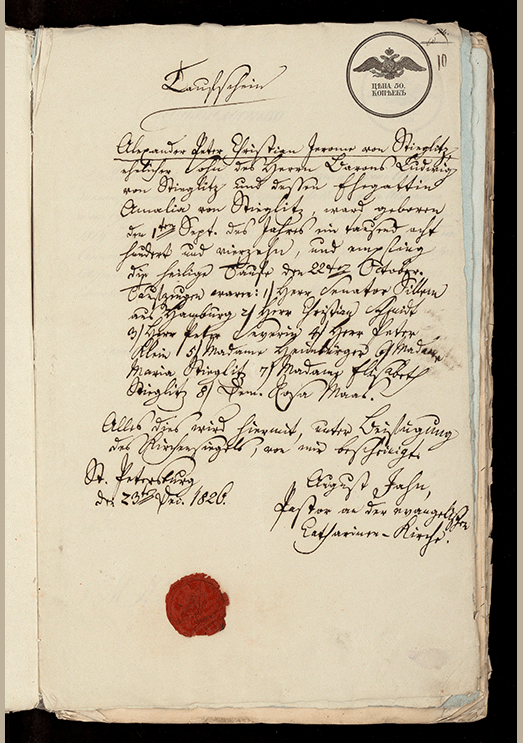 10
ЦѢНА 50.
КОПѢЕКЪ
Taufschein
Alexander Peter Christian Jerome von Stieglitz,
ehelicher Sohn des Herrn Barons Ludwig
von Stieglitz und dessen Ehegattin
Amalia von Stieglitz ward geboren
den 1ten Sept. des Jahres ein tausend acht
hundert und vierzehn, und empfing
die heilige Taufe den 22ten October.
Taufzeugen waren: 1) Herr Senator Sillem
aus Hamburg 2) Herr Christian
3) Herr Peter Severin 4) Herr Peter
Klein 5) Madame Heimbürger 6) Madame
Maria Stieglitz 7) Madame Elisabeth
Stieglitz 8) Dem. Rosa Maas.
Alles dies wird hiermit, unter Beifügung
des Kirchensiegels, von mir bescheinigt.
St. Petersburg
den 23ten Dec. 1826.
August Jahn,
Pastor an der evangelischen
Catharinen-Kirche.